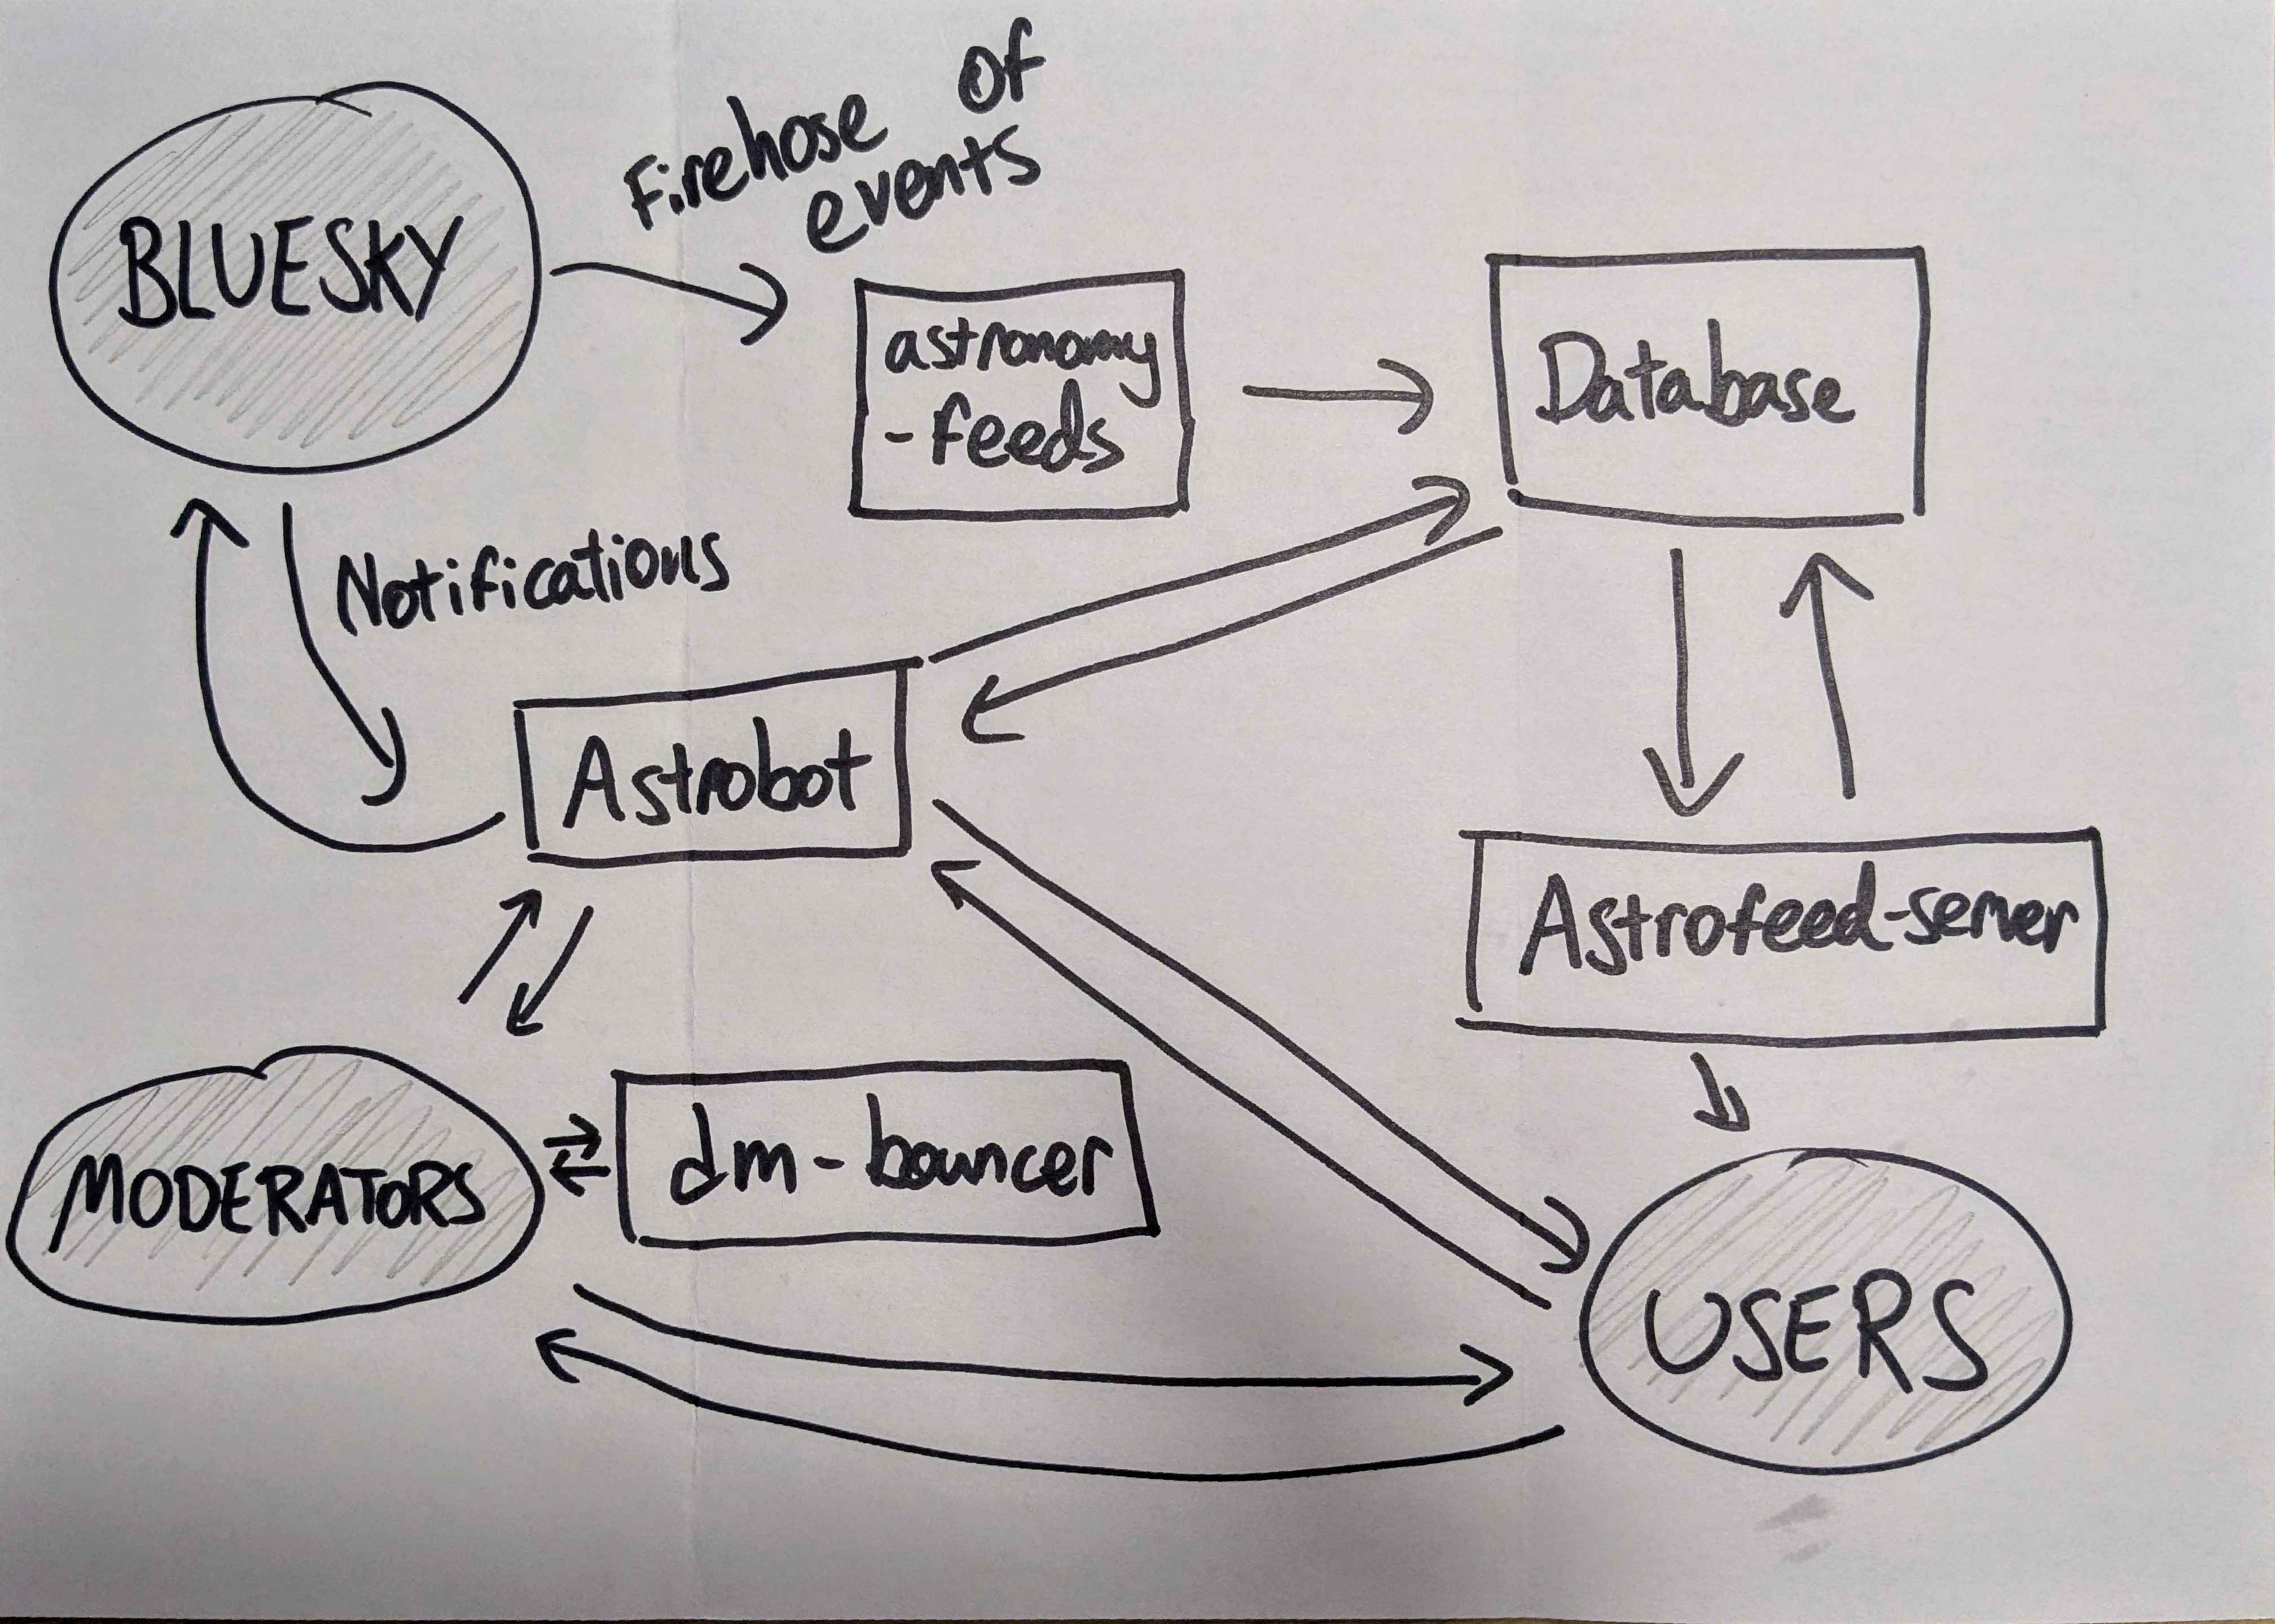 Firehose of
events
BLUESKY
astronomy
-feeds
Database
Notifications
Astrobot
Astrofeed-server
MODERATORS
dm-bouncer
USERS